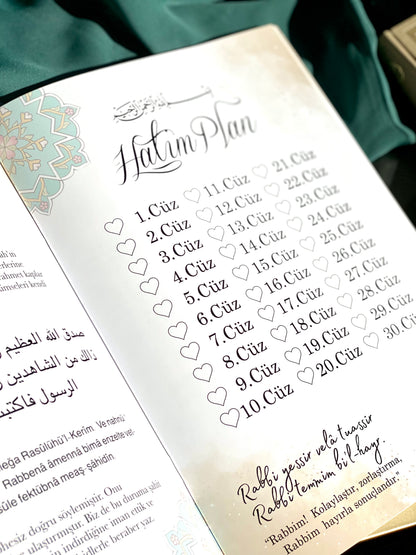 ah'ın
erlerine
rahmet kapılar
kimseleri kendi
صدق الله العظيم
ذالك من الشاهدين
الرسول فاكتبنا
lega Rasûlühü'l-Kerîm. Ve nahnü
Rabbenâ âmennâ bimâ enzelte ve
sûle fektübnâ meaş-şâhidîn.
hesiz doğru söylemiştir. Onu
ulaştırmıştır. Biz de bu duruma şâhit
indirdiğine iman ettik ve
hidlerle beraber yaz.
بسم الله الرحمن الرحيم
Hatim Plan
1.Cüz 11.Cüz 21.Cüz
2.Cüz 12.Cüz 22.Cüz
3.Cüz 13.Cüz 23.Cüz
4.Cüz 14.Cüz 24.Cüz
5.Cüz 15.Cüz 25.Cüz
6.Cüz 16.Cüz 26.Cüz
7.Cüz 17.Cüz 27.Cüz
8.Cüz 18.Cüz 28.Cüz
9.Cüz 19.Cüz 29.Cüz
10.Cüz 20.Cüz 30.
Rabbi yessir velâ tuassir
Rabbi temmim bi'l-hayr.
"Rabbim! Kolaylaştır, zorlaştırma.
Rabbim hayırla sonuçlandır."